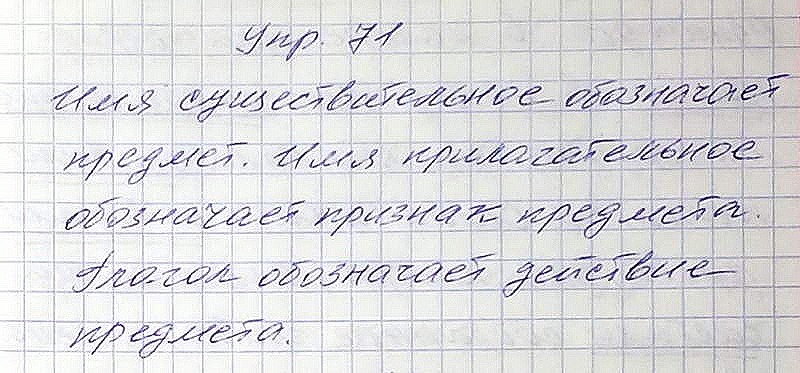 Упр. 71
Имя существительное обозначает
предмет. Имя прилагательное
обозначает признак предмета.
Глагол обозначает действие
предмета.